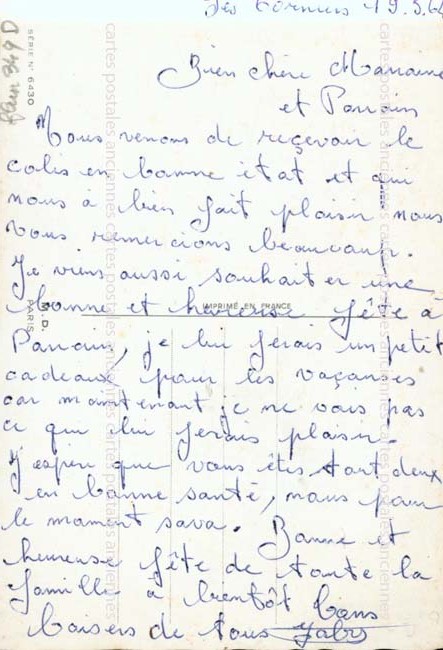 Les 19.3.62
Bien chère Marraine
et Parrain
Nous venons de reçevoir le
colis en bonne état et qui
nous à bien fait plaisir nous
vous remercions beaucoup.
Je viens aussi souhaiter une
bonne et heureuse fête à
Parrain, je lui ferais un petit
cadeaux pour les vaçances
car maintenant je ne vois pas
ce qui lui ferais plaisir.
J'espère que vous êtes tout deux
en bonne santé, nous pour
le moment sava. Bonne et
heureuse fête de toute la
famille à bientôt bons
baisers de tous
SÉRIE N° 6430
M.D.
PARIS
IMPRIMÉ EN FRANCE
cartes postales anciennes